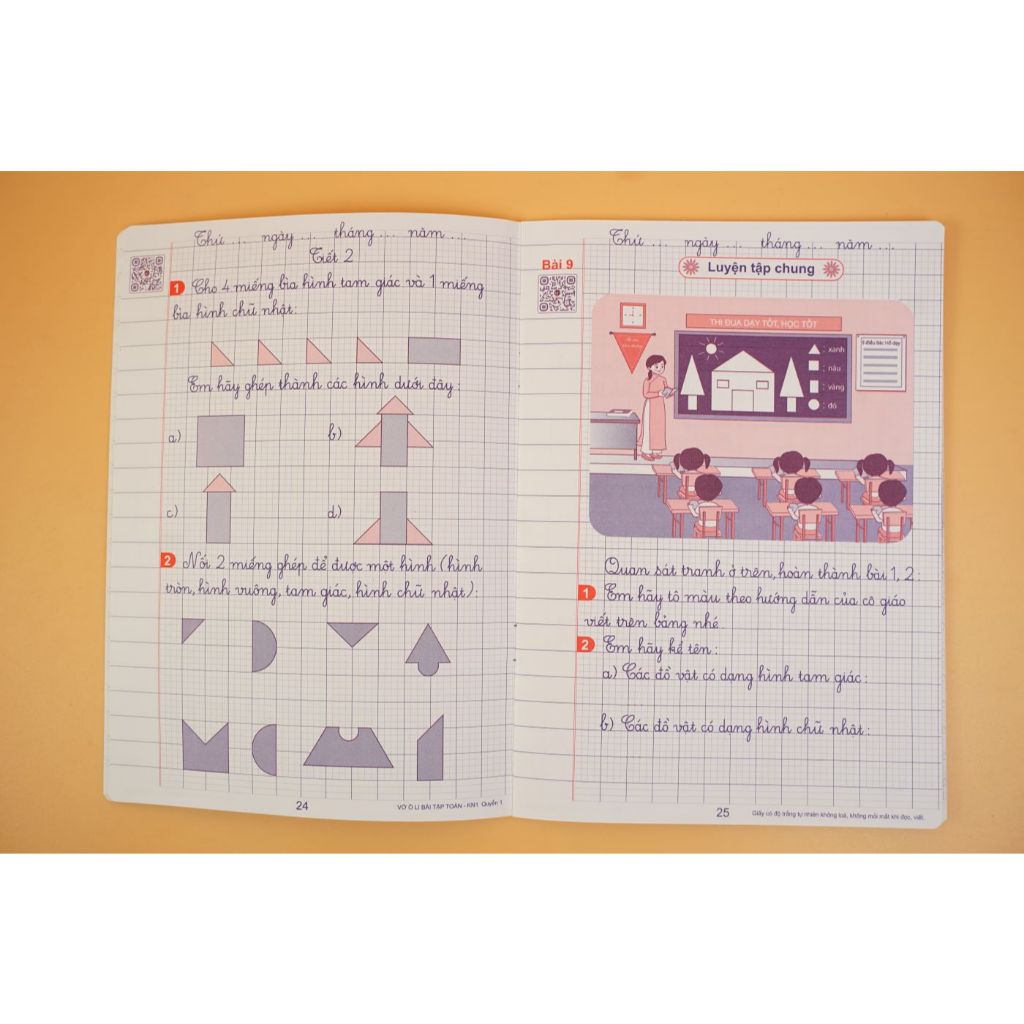 Thứ ... ngày ... tháng ... năm ...
Tiết 2
1 Cho 4 miếng bìa hình tam giác và 1 miếng
bìa hình chữ nhật:
Em hãy ghép thành các hình dưới đây:
a)
b)
c)
d)
2 Nối 2 miếng ghép để được một hình (hình
tròn, hình vuông, tam giác, hình chữ nhật):
24
VỞ Ô LI BÀI TẬP TOÁN - KN1 Quyển 1
Thứ ... ngày ... tháng ... năm ...
Bài 9
Luyện tập chung
THI ĐUA DẠY TỐT, HỌC TỐT
5 điều Bác Hồ dạy
: xanh
: nâu
: vàng
: đỏ
Quan sát tranh ở trên, hoàn thành bài 1, 2:
1 Em hãy tô màu theo hướng dẫn của cô giáo
viết trên bảng nhé.
2 Em hãy kể tên:
a) Các đồ vật có dạng hình tam giác:
b) Các đồ vật có dạng hình chữ nhật:
25
Giấy có độ trắng tự nhiên không loá, không mỏi mắt khi đọc, viết.